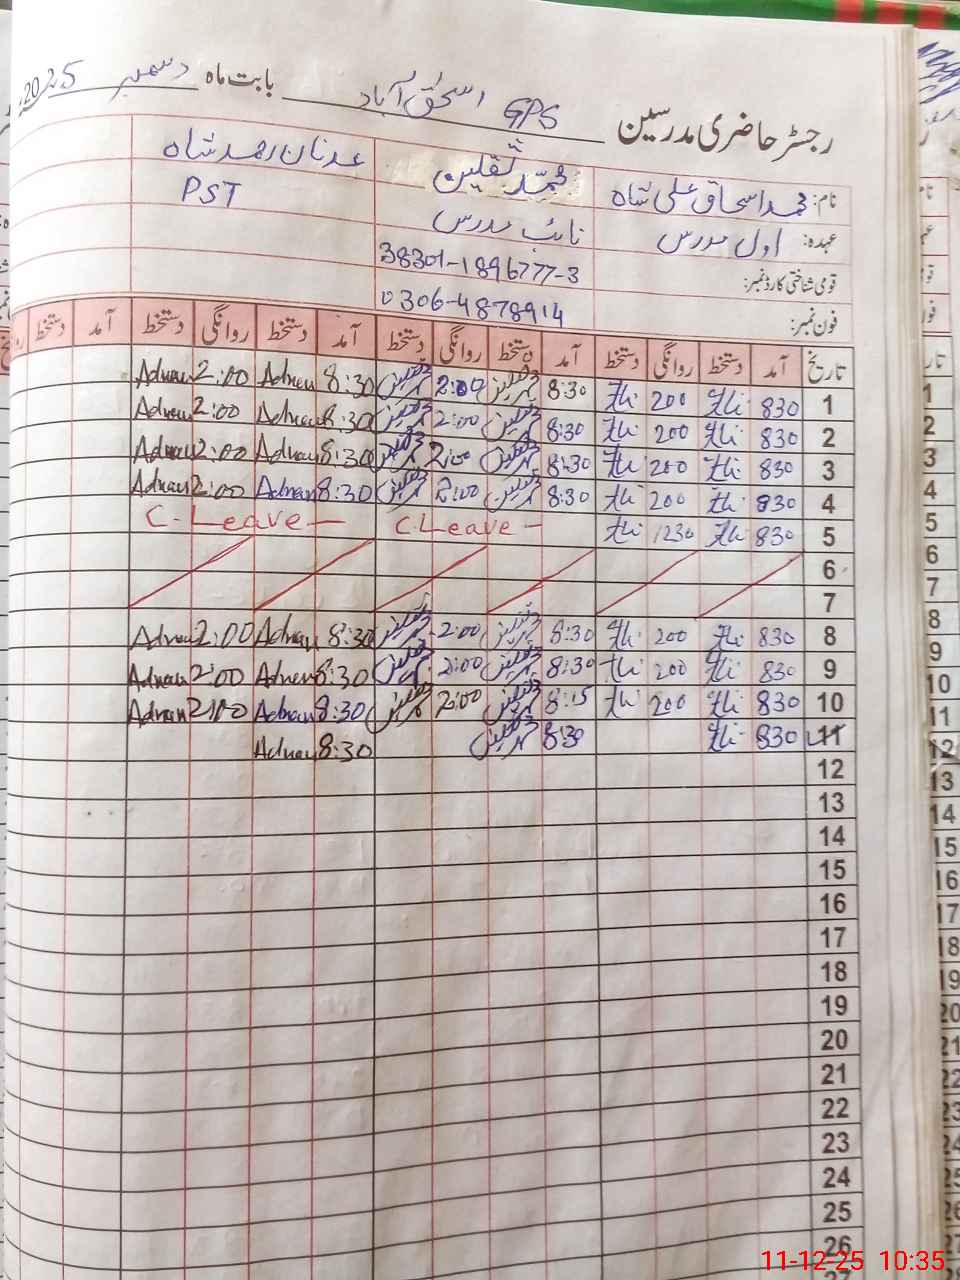 رجسٹر حاضری مدرسین GPS اسحٰق آباد بابت ماہ دسمبر 2025
نام: محمد اسحاق علی شاہ محمد ثقلین عدنان احمد شاہ
عہدہ: اول مدرس نائب مدرس PST
قومی شناختی کارڈ نمبر: 38301-1896777-3
فون نمبر: 0306-4878914
تاریخ آمد دستخط روانگی دستخط آمد دستخط روانگی دستخط آمد دستخط روانگی دستخط آمد دستخط
1 830 200 8:30 2:00 8:30 Adnan 2:00 Adnan
2 830 200 8:30 2:00 8:30 Adnan 2:00 Adnan
3 830 200 8:30 2:00 8:30 Adnan 2:00 Adnan
4 830 200 8:30 2:00 8:30 Adnan 2:00 Adnan
5 830 1230 C.Leave – C.Leave –
6
7
8 830 200 8:30 2:00 8:30 Adnan 2:00 Adnan
9 830 200 8:30 2:00 8:30 Adnan 2:00 Adnan
10 830 200 8:15 2:00 8:30 Adnan 2:00 Adnan
11 830 8:30 8:30 Adnan
12
13
14
15
16
17
18
19
20
21
22
23
24
25
26
27
11-12-25 10:35